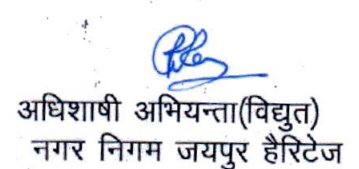 अधिशाषी अभियन्ता(विद्युत)
नगर निगम जयपुर हैरिटेज